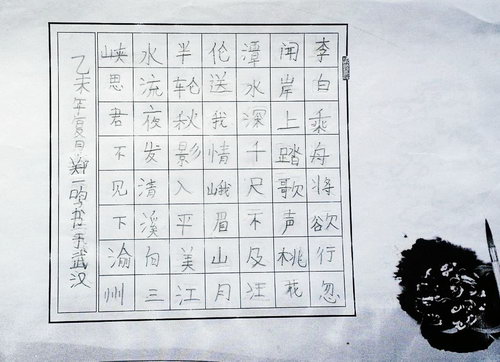 李白乘舟将欲行忽
闻岸上踏歌声桃花
潭水深千尺不及汪
伦送我情峨眉山月
半轮秋影入平美江
水流夜发清溪向三
峡思君不见下渝州
乙未年夏日郑一鸣书于武汉